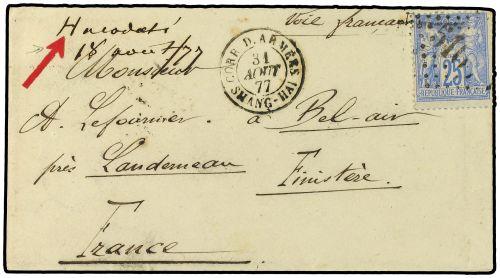 Hacodati
Voie française
18 août/77
CORR. D. ARMÉES
31
AOUT
77
SHANG-HAI
25
RÉPUBLIQUE FRANÇAISE
Monsieur
A. Lefournier à Bel-air
près Landerneau
Finistère.
France